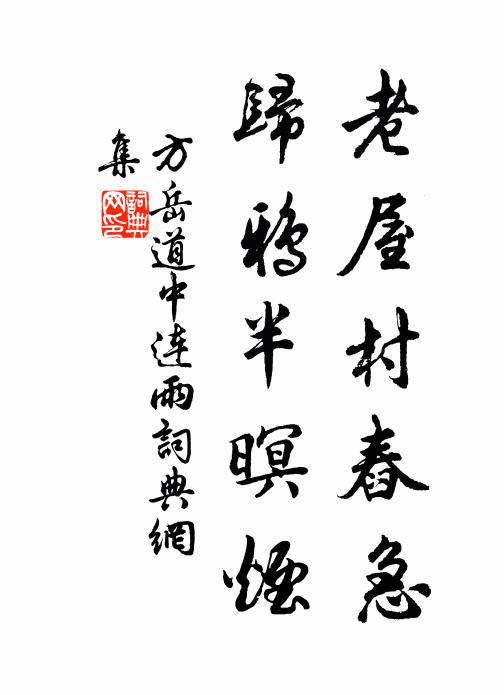 老屋村舂急
歸鴉半暝煙
方岳道中連雨詞典網
集
詞典
网印